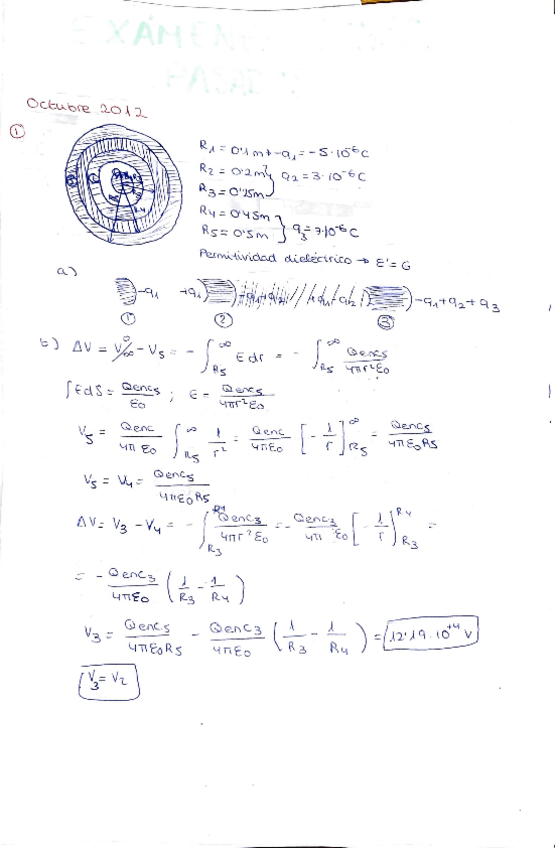 Octubre 2012
①
R1 = 0'1m → -q1 = -5·10⁻⁶C
R2 = 0'2m
R3 = 0'25m } q2 = 3·10⁻⁶C
R4 = 0'45m
R5 = 0'5m } q3 = 7·10⁻⁶C
Permitividad dieléctrico → ε' = 6
a)
-q1 +q1 -q1+q2+q3
① ② ③
b) ΔV = V∞ - V5 = - ∫_R5^∞ E dr = - ∫_R5^∞ Qenc5/4πr²ε0
∫EdS = Qenc5/ε0 ; E = Qenc5/4πr²ε0
V5 = Qenc/4πε0 ∫_R5^∞ 1/r² = Qenc/4πε0 [-1/r]_R5^∞ = Qenc5/4πε0R5
V5 = V4 = Qenc5/4πε0R5
ΔV = V3 - V4 = - ∫_R3^R4 Qenc3/4πr²ε0 = - Qenc3/4πε0 [-1/r]_R3^R4 =
= - Qenc3/4πε0 (1/R3 - 1/R4)
V3 = Qenc5/4πε0R5 - Qenc3/4πε0 (1/R3 - 1/R4) = 12'19·10⁺⁴ V
V3 = V2